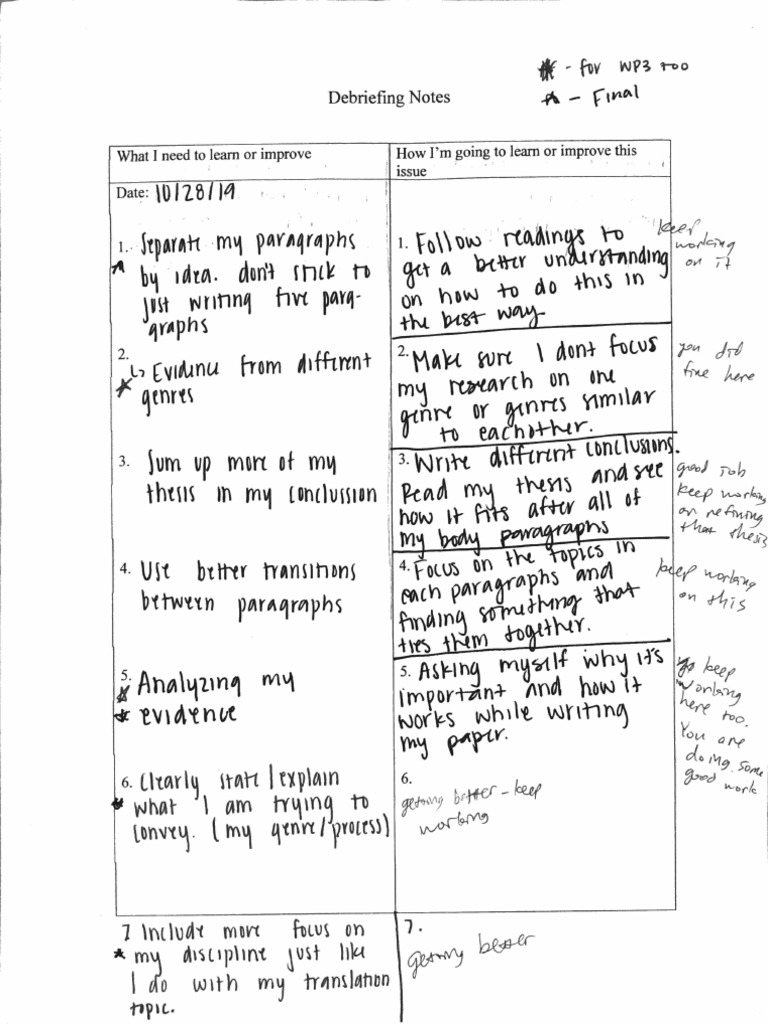 * - for WP3 too
☆ - Final
Debriefing Notes
What I need to learn or improve
How I'm going to learn or improve this
issue
Date: 10/28/19
1. Separate my paragraphs
by idea. don't stick to
just writing five para-
graphs
1. Follow readings to
get a better understanding
on how to do this in
the best way
keep
working
on it
2.
↳ Evidence from different
* genres
2. Make sure I dont focus
my research on one
genre or genres similar
to eachother.
you did
fine here
3. Sum up more of my
thesis in my conclussion
3. Write different conclusions.
Read my thesis and see
how it fits after all of
my body paragraphs
good job
keep working
on refining
that thesis
4. Use better transitions
between paragraphs
4. Focus on the topics in
each paragraphs and
finding something that
ties them together.
keep working
on this
5.
* Analyzing my
* evidence
5. Asking myself why it's
important and how it
works while writing
my paper.
keep
working
here too.
You are
doing some
good work
6. Clearly state/explain
* what I am trying to
convey. (my genre/process)
6.
getting better - keep
working
7 Include more focus on
* my discipline just like
I do with my translation
topic.
7.
getting better